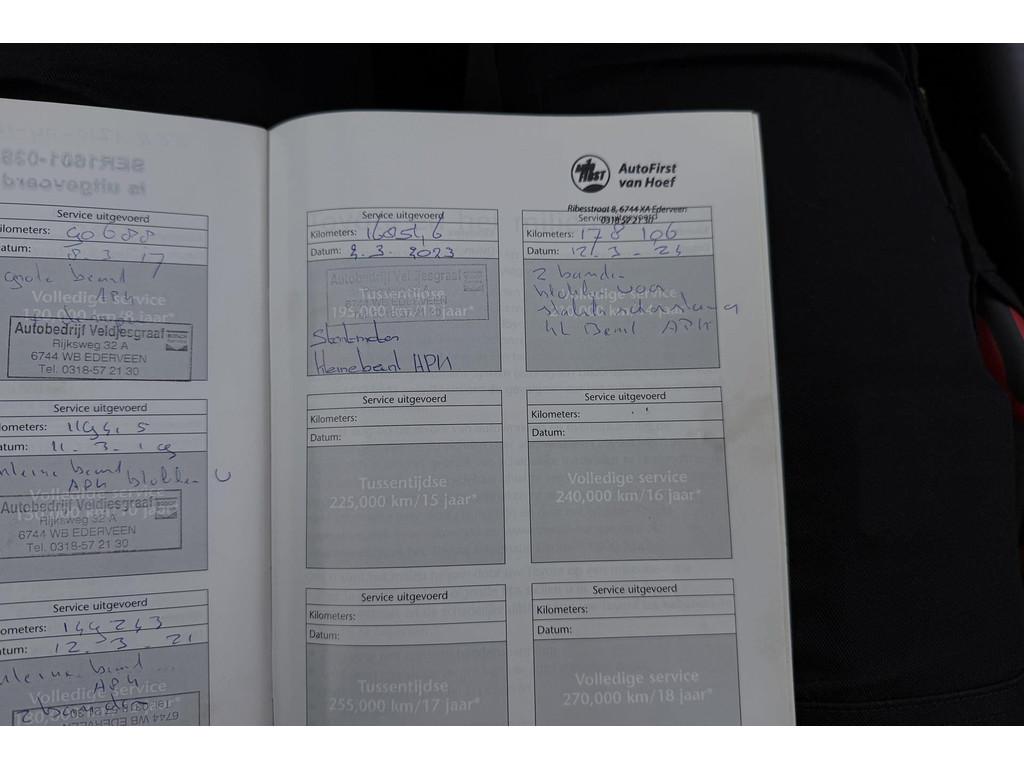 SER1601-038
is uitgevoerd
Service uitgevoerd
Kilometers: 90688
Datum: 8.3.17
grote beurt
APK
Volledige service
120,000 km/8 jaar*
Autobedrijf Veldjesgraaf
Rijksweg 32 A
6744 WB EDERVEEN
Tel. 0318-57 21 30
Service uitgevoerd
ometers:
atum: 11.3.19
kleine beurt
APK blokken
Volledige service
150,000 km/10 jaar*
Autobedrijf Veldjesgraaf
Rijksweg 32 A
6744 WB EDERVEEN
Tel. 0318-57 21 30
Service uitgevoerd
ometers: 144243
atum: 12.3.21
kleine beurt
APK
Volledige service
2 banden
Tel. 0318-57 21 30
6744 WB EDERVEEN
AutoFirst
van Hoef
Ribesstraat 8, 6744 XA Ederveen
0318 57 21 30
Service uitgevoerd
Kilometers:
Datum: 2.3.2023
Autobedrijf Veldjesgraaf
Tussentijdse
6744 WB EDERVEEN
195,000 km/13 jaar*
Startmotor
kleine beurt APK
Service uitgevoerd
Kilometers: 178106
Datum: 12.3.24
2 banden
Volledige service
blokken voor
kL Beurt APK
Service uitgevoerd
Kilometers:
Datum:
Tussentijdse
225,000 km/15 jaar*
Service uitgevoerd
Kilometers:
Datum:
Volledige service
240,000 km/16 jaar*
Service uitgevoerd
Kilometers:
Datum:
Tussentijdse
255,000 km/17 jaar*
Service uitgevoerd
Kilometers:
Datum:
Volledige service
270,000 km/18 jaar*